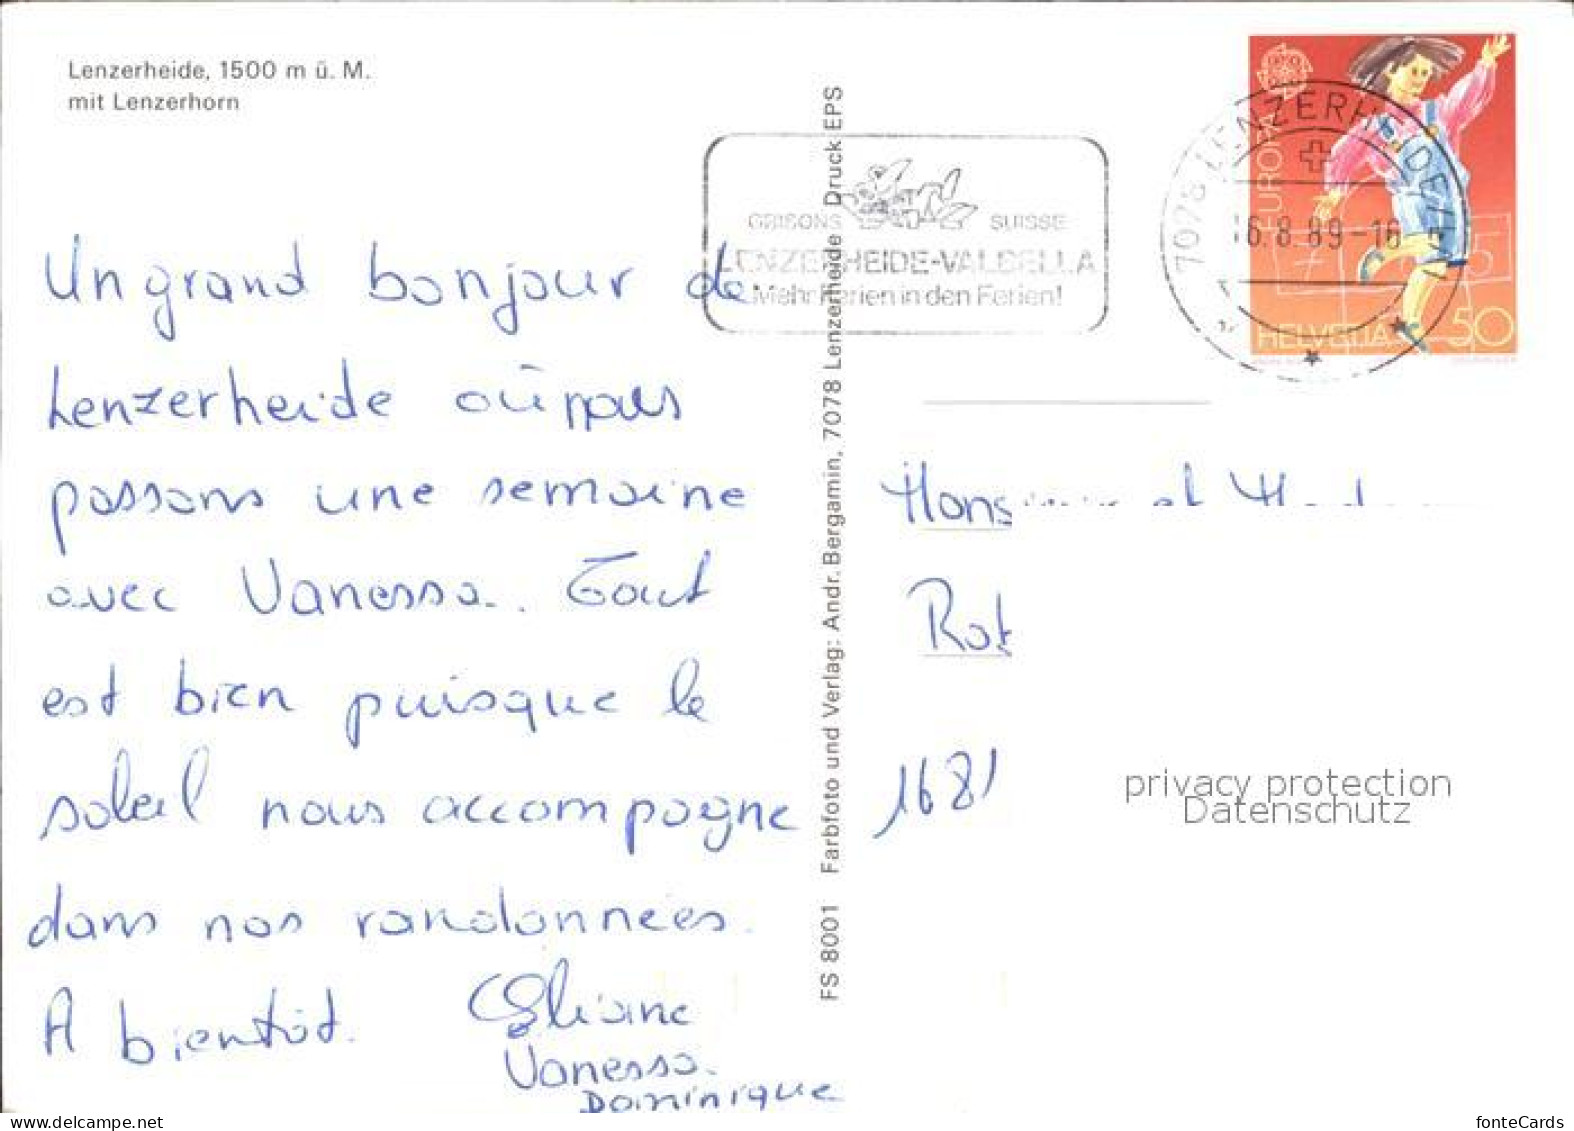 Lenzerheide, 1500 m ü. M.
mit Lenzerhorn
Un grand bonjour de
Lenzerheide où nous
passons une semaine
avec Vanessa. Tout
est bien puisque le
soleil nous accompagne
dans nos randonnées.
A bientôt.
Eliane
Vanessa.
Dominique
FS 8001 Farbfoto und Verlag: Andr. Bergamin, 7078 Lenzerheide Druck EPS
GRISONS SUISSE
LENZERHEIDE-VALBELLA
Mehr Ferien in den Ferien!
7078 LENZERHEIDE/LAI
16.8.89-16
EUROPA
HELVETIA 50
Monsieur et Madame
Rot
1681
privacy protection
Datenschutz
fonteCards